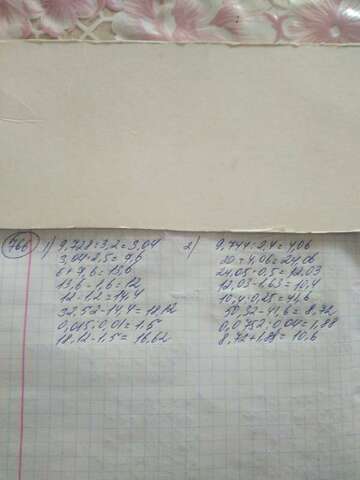 766 1) 9,728:3,2=3,04
3,04·2,5=7,6
6+7,6=13,6
13,6-1,6=12
12·1,2=14,4
32,52-14,4=18,12
0,015:0,01=1,5
18,12-1,5=16,62
2) 9,744:2,4=4,06
20+4,06=24,06
24,06·0,5=12,03
12,03-1,63=10,4
10,4:0,25=41,6
50,32-41,6=8,72
0,0752:0,04=1,88
8,72+1,88=10,6